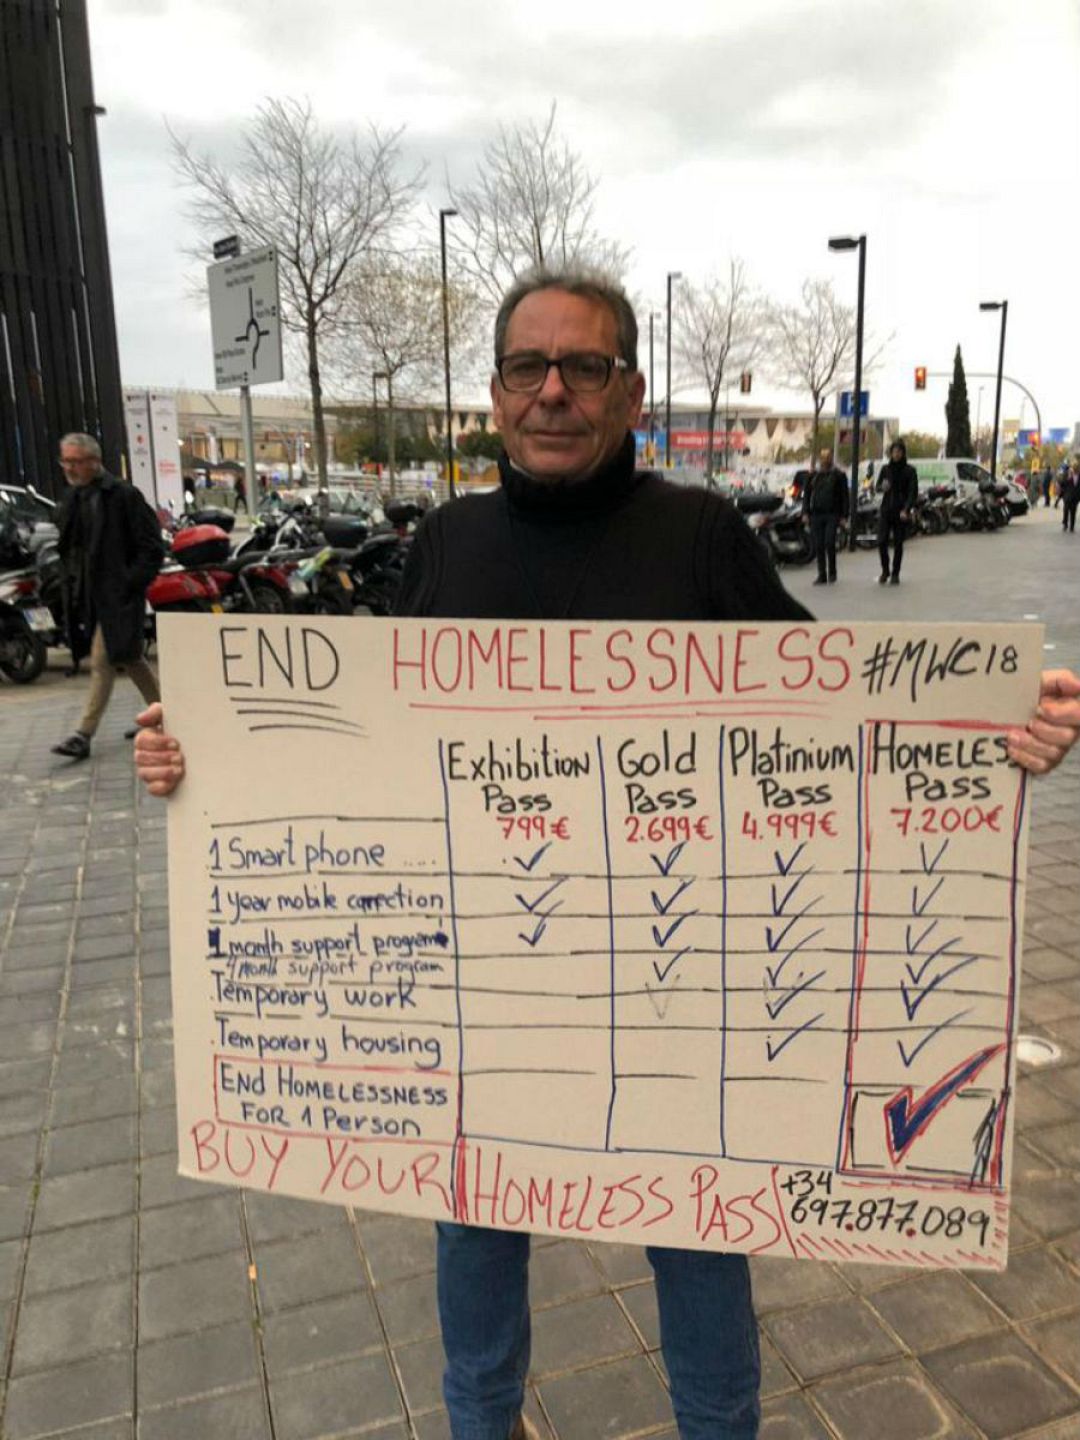 END HOMELESSNESS #MWC18
Exhibition Pass 799€
Gold Pass 2.699€
Platinium Pass 4.999€
HOMELES Pass 7.200€
1 Smart phone .....
1 year mobile connection
1 month support program
Temporary work
Temporary housing
END HOMELESSNESS
FOR 1 Person
BUY YOUR HOMELESS PASS
+34
697.877.089
P